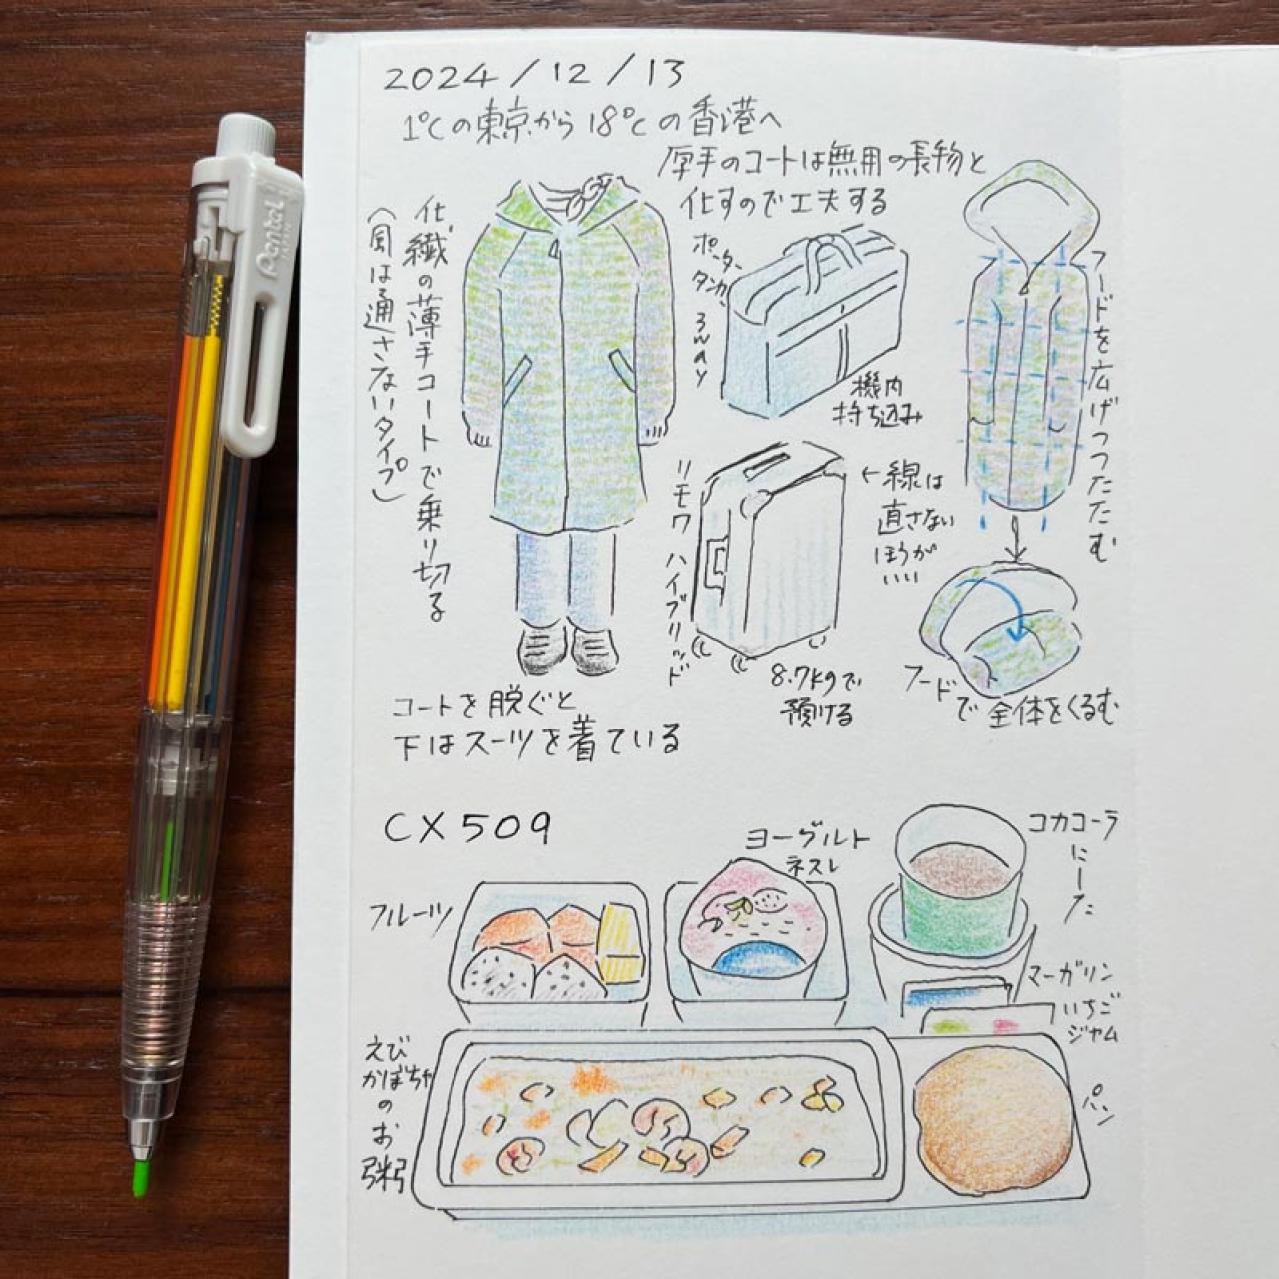 2024/12/13
1℃の東京から18℃の香港へ
厚手のコートは無用の長物と
化すので工夫する
化繊の薄手コートで乗り切る
(風は通さないタイプ)
ポーター
タンカー 3way
機内
持ち込み
フードを広げつつたたむ
リモワ ハイブリッド
←線は
直さない
ほうが
いい
8.7kgで
預ける
フードで全体をくるむ
コートを脱ぐと
下はスーツを着ている
CX509
フルーツ
ヨーグルト
ネスレ
コカコーラ
にした
マーガリン
いちご
ジャム
えび
かぼちゃ
のお粥
パン
Pentel